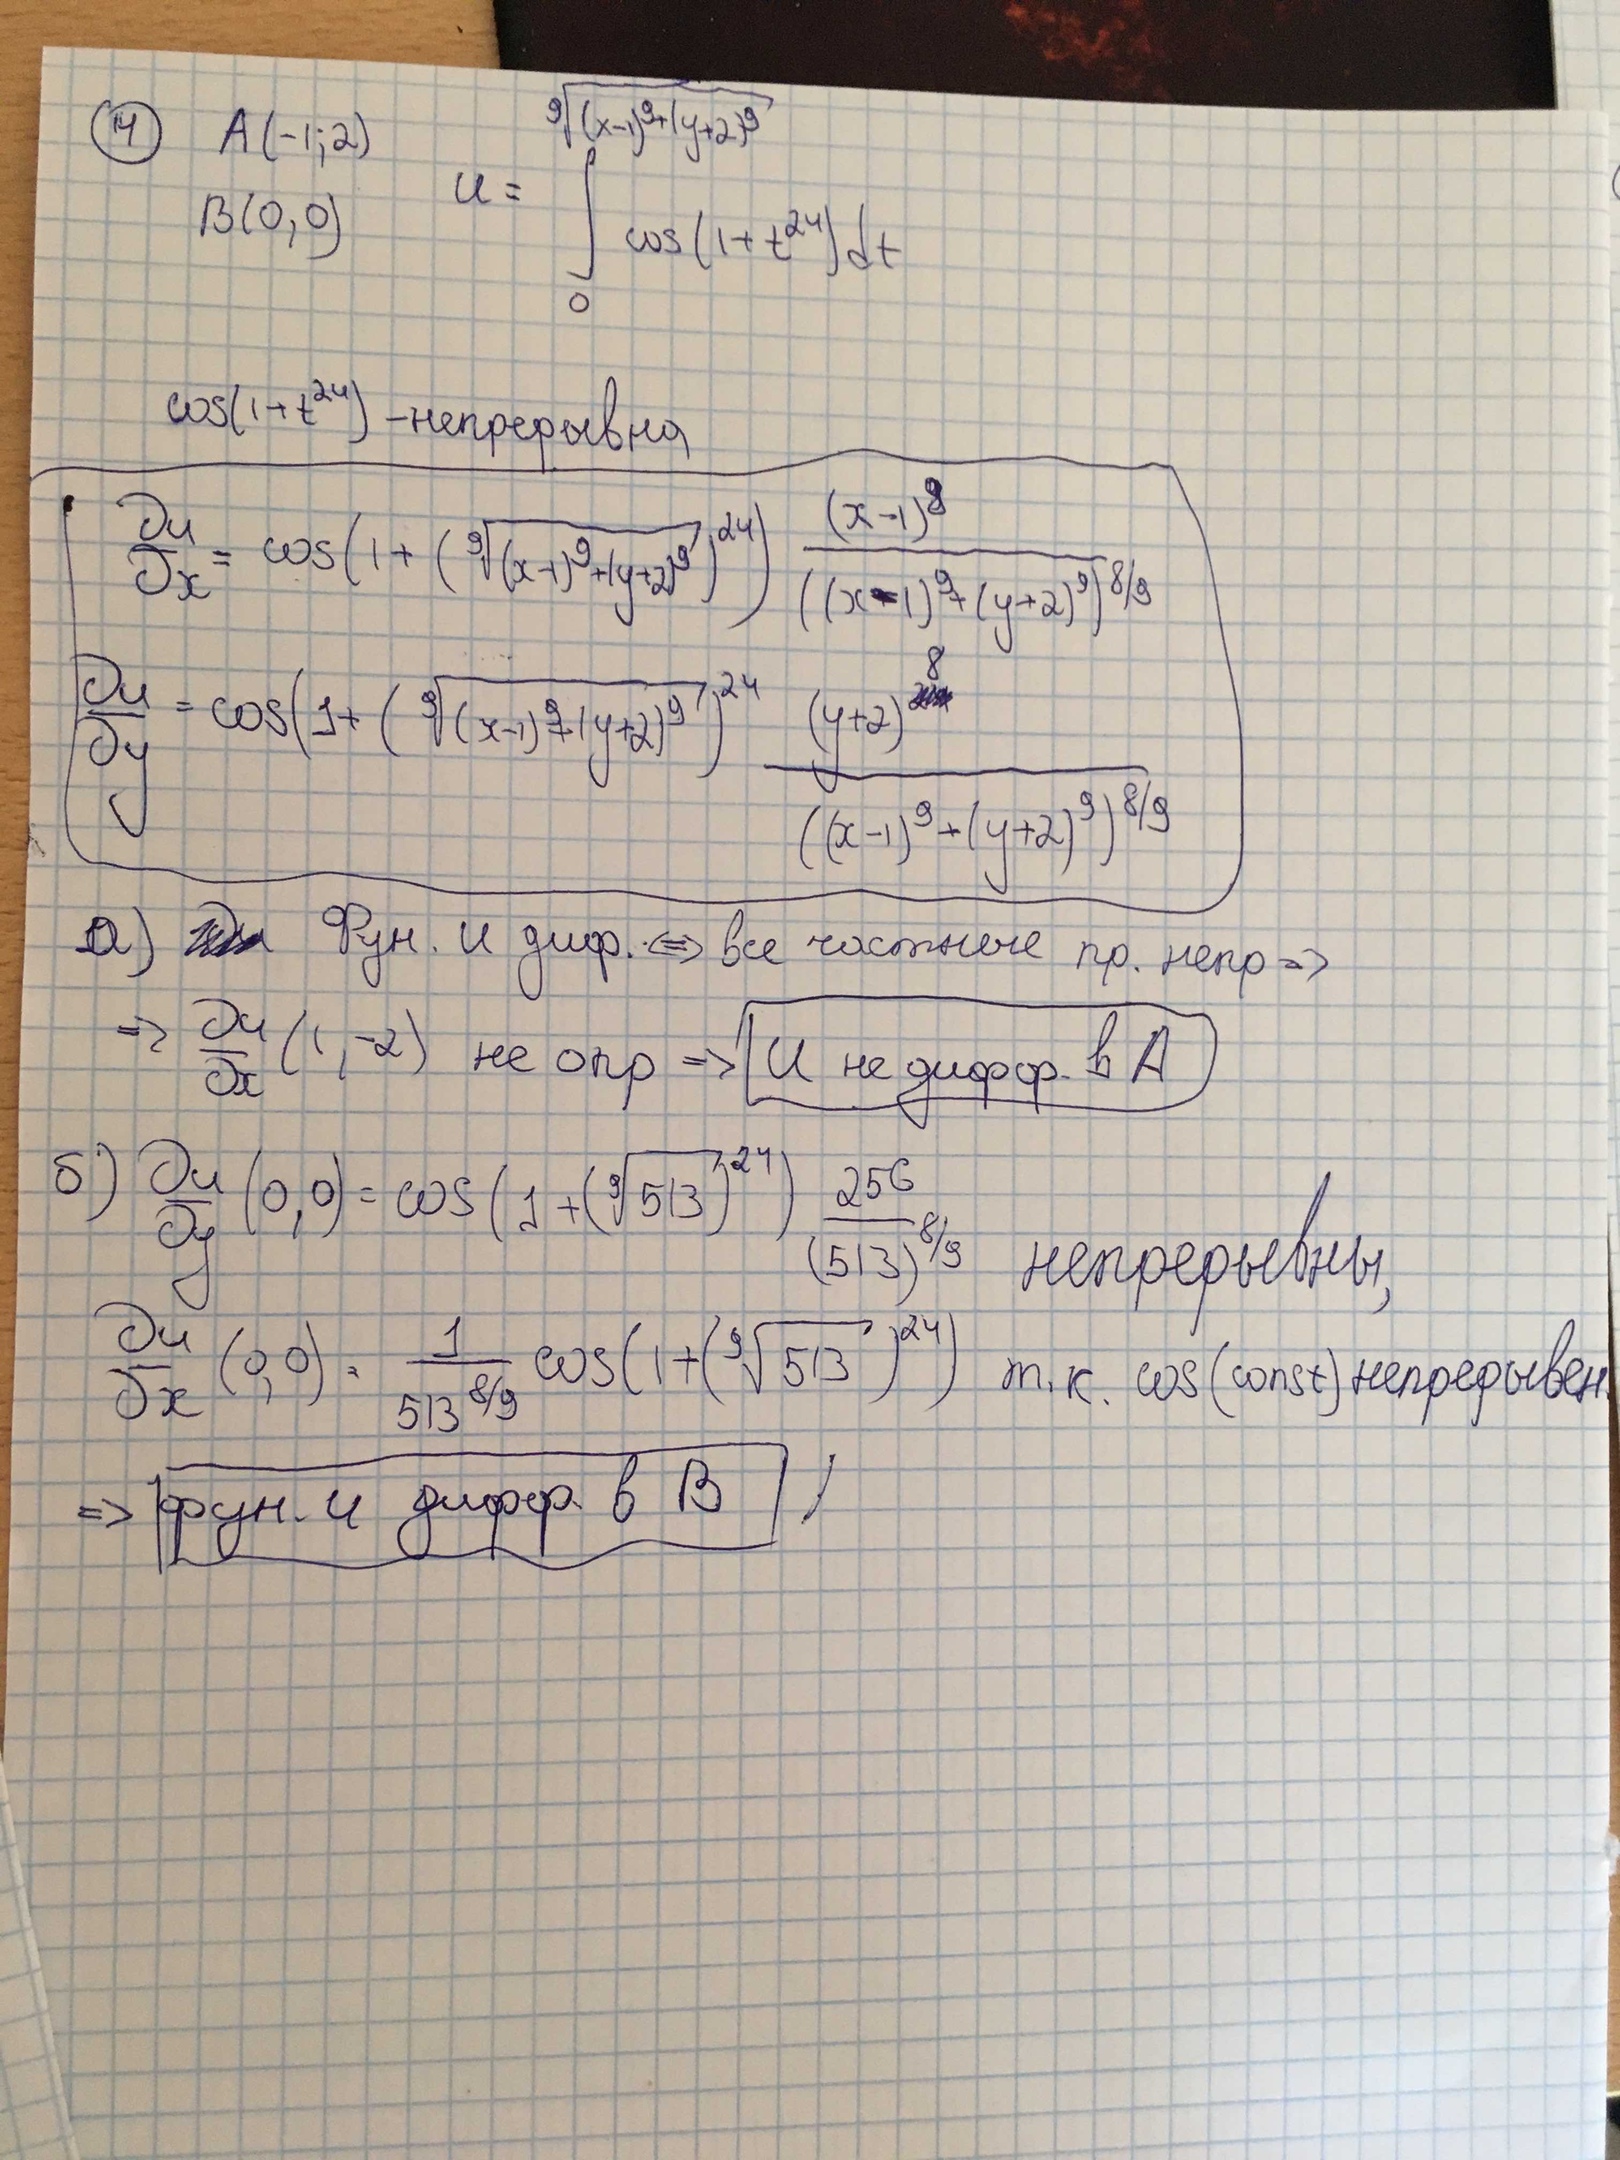 14 A(-1;2)
B(0,0) u = ∫₀^{⁹√((x-1)⁹+(y+2)⁹)} cos(1+t²⁴)dt
cos(1+t²⁴) – непрерывна
∂u/∂x = cos(1+(⁹√((x-1)⁹+(y+2)⁹))²⁴) (x-1)⁸/((x-1)⁹+(y+2)⁹)^{8/9}
∂u/∂y = cos(1+(⁹√((x-1)⁹+(y+2)⁹))²⁴ (y+2)⁸/((x-1)⁹+(y+2)⁹)^{8/9}
а) Фун. u диф. <=> все частные пр. непр =>
=> ∂u/∂x (1,-2) не опр => u не дифф. в A
б) ∂u/∂y (0,0) = cos(1+(⁹√513)²⁴) 256/(513)^{8/9} непрерывны,
∂u/∂x (0,0) = 1/513^{8/9} cos(1+(⁹√513)²⁴) т.к. cos(const) непрерывен
=> фун. u дифф. в B